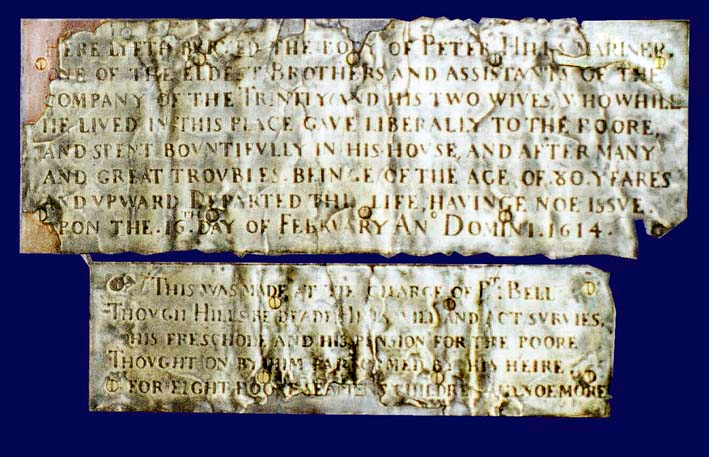 HERE LYETH BVRYED THE BODY OF PETER HILLS MARINER.
ONE OF THE ELDEST BROTHERS AND ASSISTANTS OF THE
COMPANY OF THE TRINITY AND HIS TWO WIVES, WHO WHILL
HE LIVED IN THIS PLACE GAVE LIBERALLY TO THE POORE,
AND SPENT BOVNTIFVLLY IN HIS HOVSE, AND AFTER MANY
AND GREAT TROVBLES. BEINGE OF THE AGE OF. 80. YEARES
AND VPWARD DEPARTED THIS LIFE, HAVINGE NOE ISSVE.
VPON THE. 16TH. DAY OF FEBRVARY ANO DOMINI. 1614.
THIS WAS MADE AT THE CHARGE OF RT: BELL
THOVGH HILLS BE DEADE HILLS WILL AND ACT SVRVIES,
HIS FRESCHOLE AND HIS PENSION FOR THE POORE
THOVGHT ON BY HIM PARFORMED BY HIS HEIRE.
FOR EIGHT POORE CHILDREN AND NOE MORE